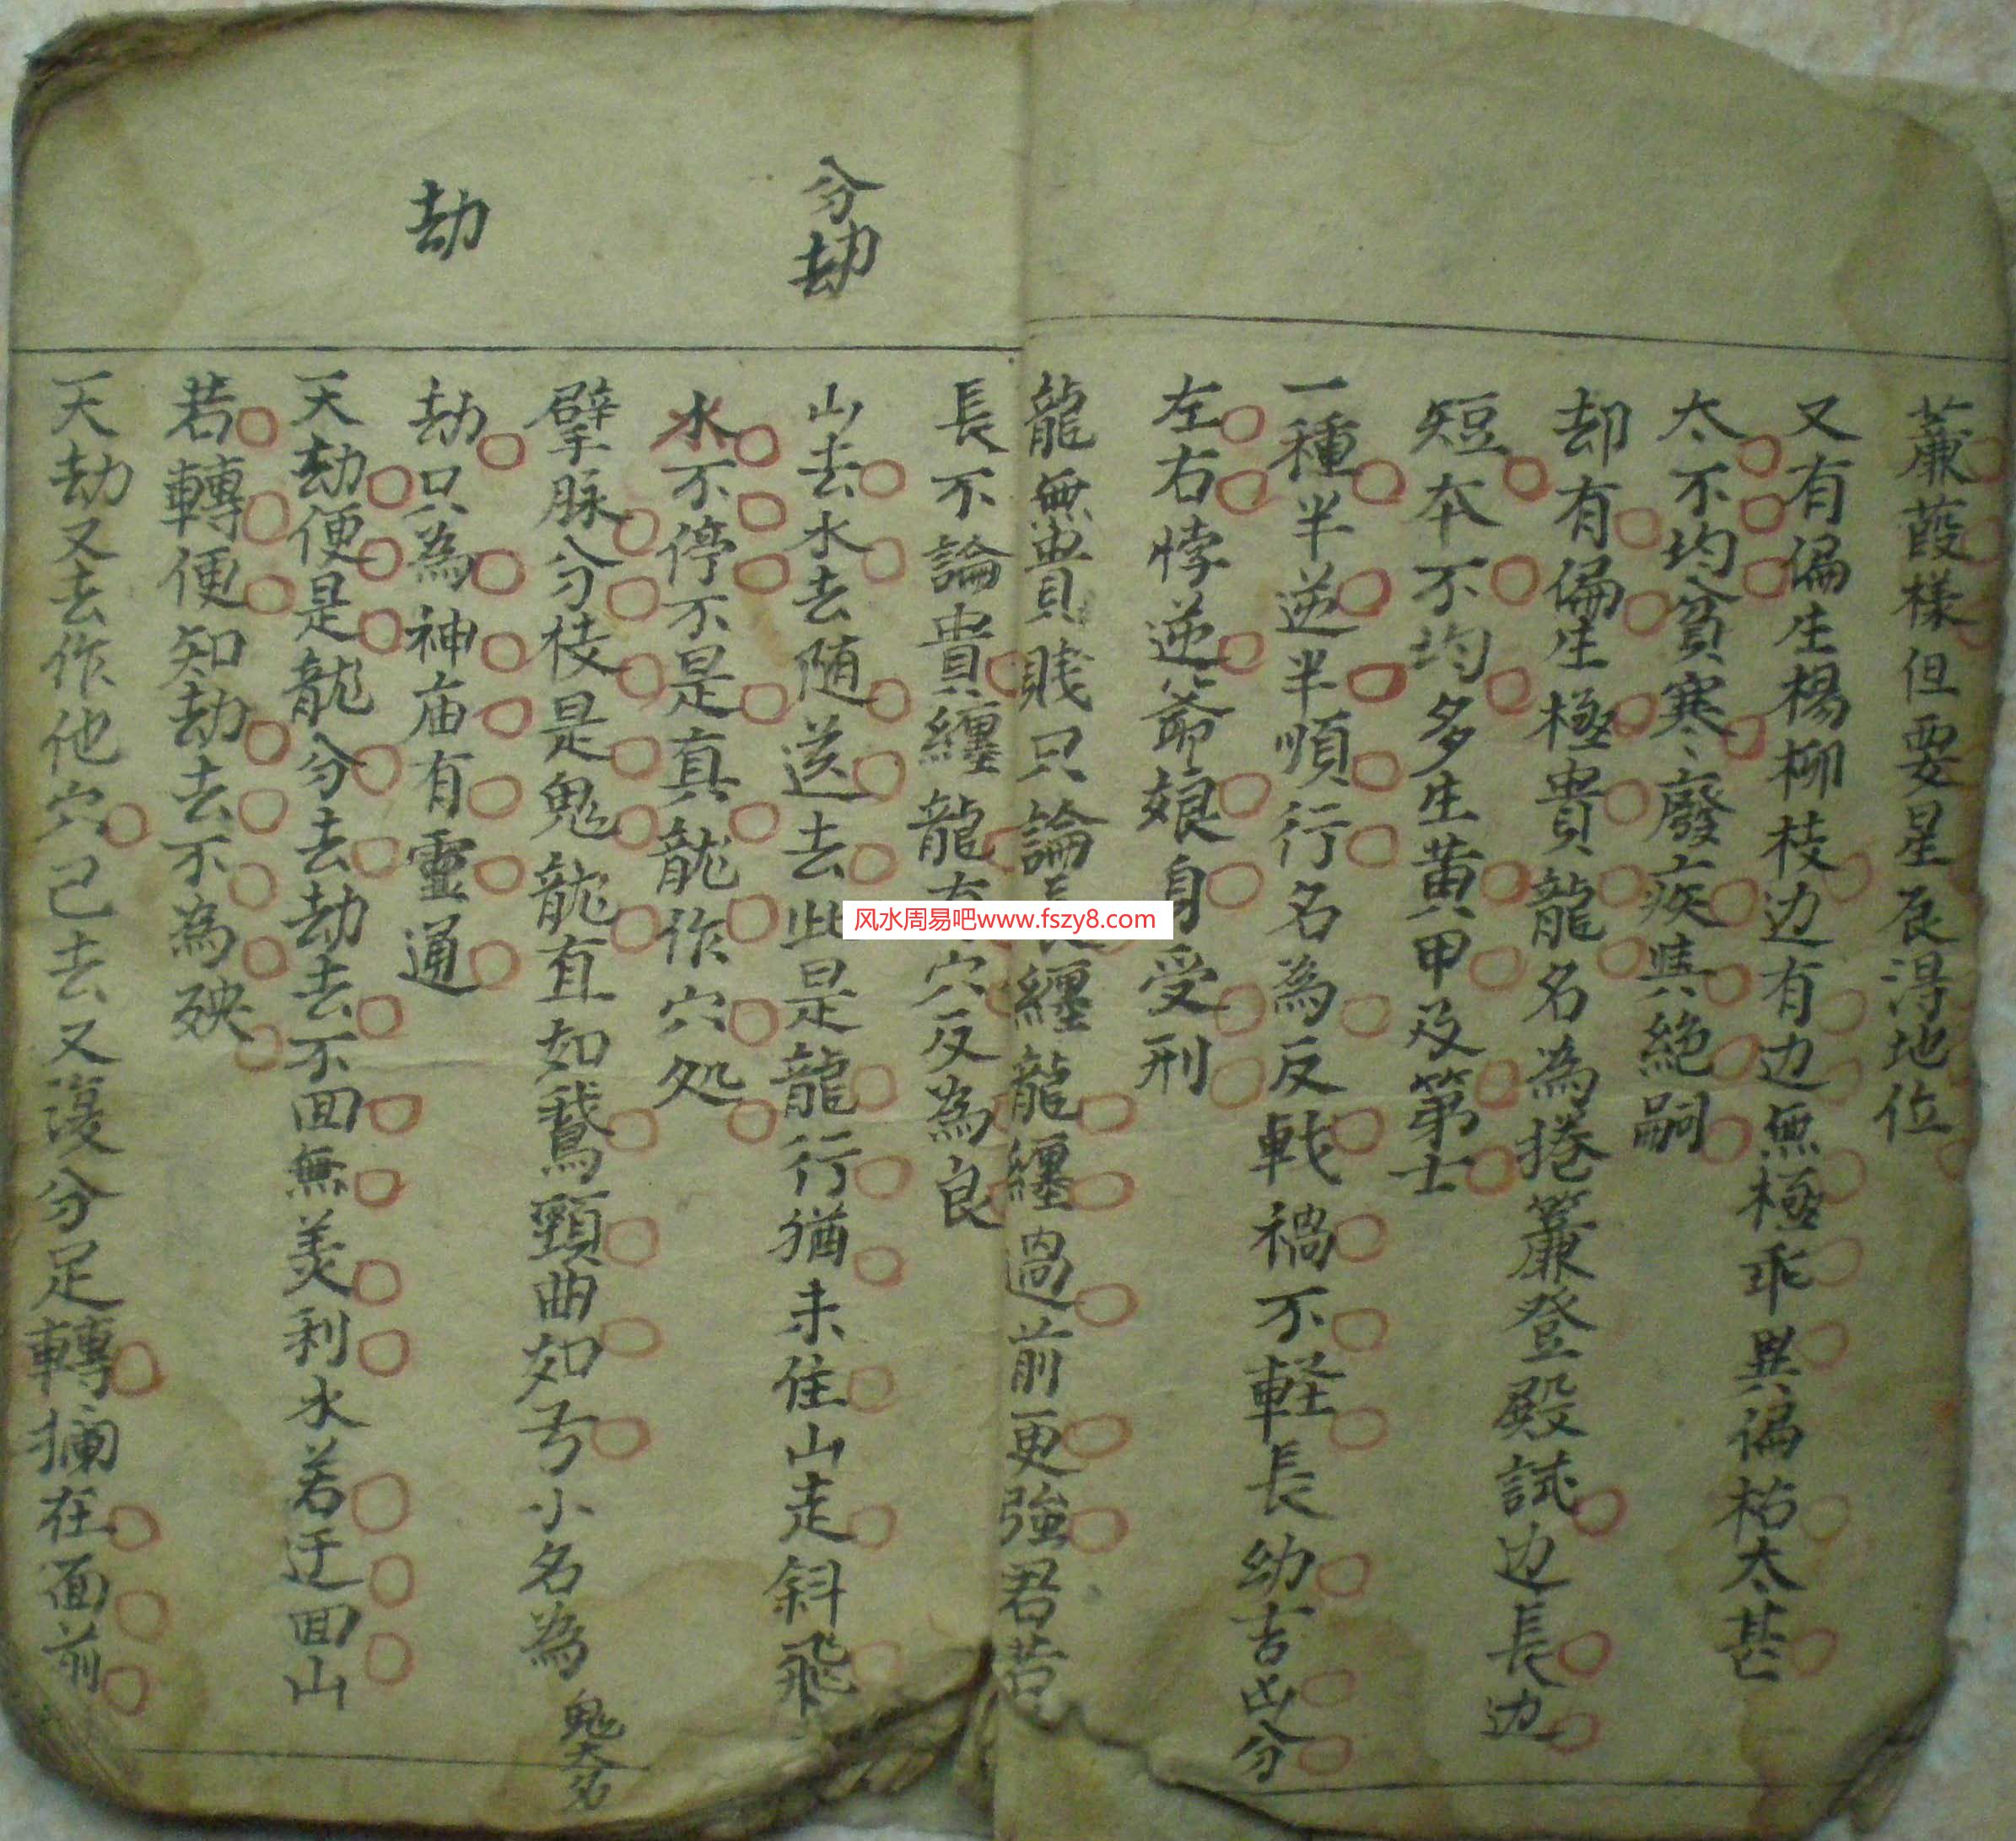 薕葭樣但要星辰淂地位
又有偏生楊柳枝边有边無極乖異偏枯太甚
太不均貧寒廢疾㷠絶嗣
却有偏生極貴龍名為捲簾登殿試边長边
短夲不均多生黄甲及苐士
一種半逆半順行名為反戟禍不軽長幼吉凶分
左右悖逆爺娘身受刑
龍無貴賤只論長纏龍纏過前更強君若
長不論貴纏龍有穴反為良
分劫
山去水去随送去此是龍行猶未住山走斜飛
水不停不是真龍作穴处
擘脉分枝是鬼龍直如鵞頸曲如弓小名為鬼大名
劫
劫只為神庙有靈通
天劫便是龍分去劫去不回無美利水若迂回山
若轉便知劫去不為殃
天劫又去作他穴己去又復分足轉攔在面前
风水周易吧www.fszy8.com